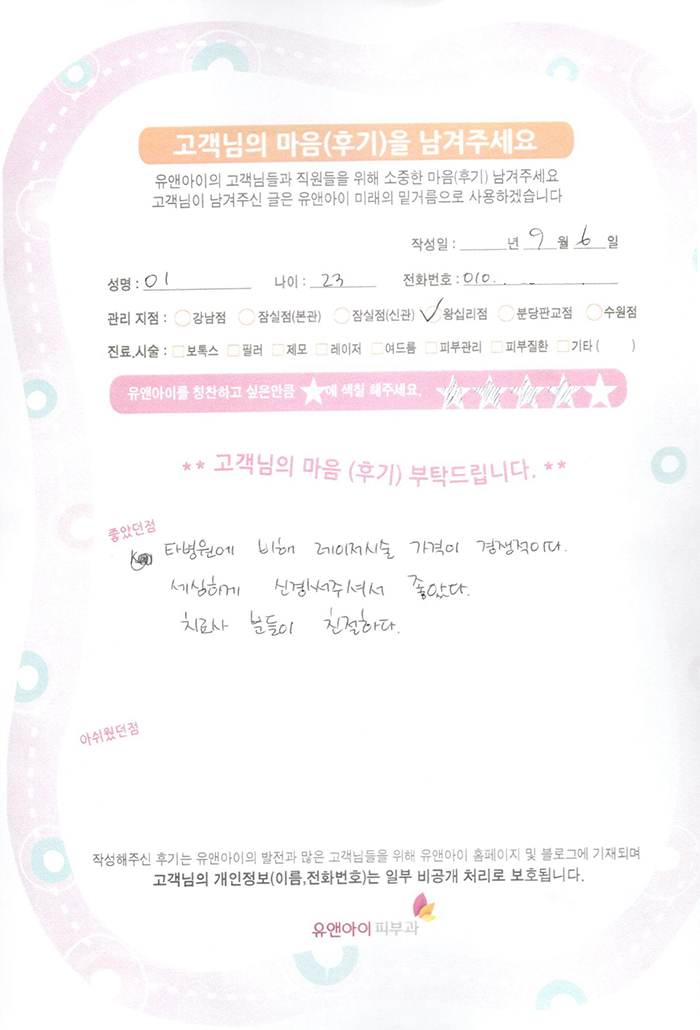 고객님의 마음(후기)을 남겨주세요
유앤아이의 고객님들과 직원들을 위해 소중한 마음(후기) 남겨주세요
고객님이 남겨주신 글은 유앤아이 미래의 밑거름으로 사용하겠습니다
작성일 : 년 9 월 6 일
성명 : 이 나이 : 23 전화번호 : 010.
관리 지점 : 강남점 잠실점(본관) 잠실점(신관) 왕십리점 분당판교점 수원점
진료,시술 : 보톡스 필러 제모 레이저 여드름 피부관리 피부질환 기타 ( )
유앤아이를 칭찬하고 싶은만큼 ★에 색칠 해주세요, ★★★★★
** 고객님의 마음 (후기) 부탁드립니다. **
좋았던점
타병원에 비해 레이저시술 가격이 경쟁적이다.
세심하게 신경써주셔서 좋았다.
치료사 분들이 친절하다.
아쉬웠던점
작성해주신 후기는 유앤아이의 발전과 많은 고객님들을 위해 유앤아이 홈페이지 및 블로그에 기재되며
고객님의 개인정보(이름,전화번호)는 일부 비공개 처리로 보호됩니다.
유앤아이피부과